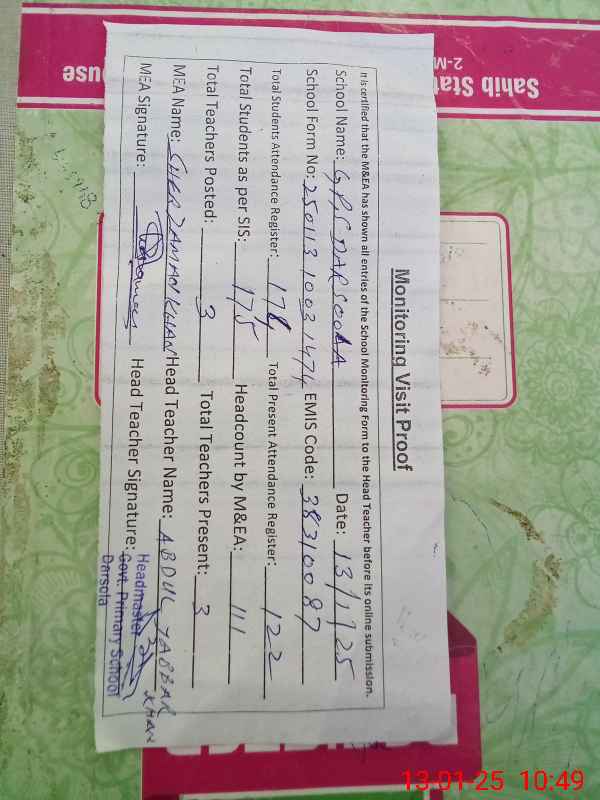 Monitoring Visit Proof
It is certified that the M&EA has shown all entries of the School Monitoring Form to the Head Teacher before its online submission.
School Name: GPS DARSOOLA Date: 13/1/25
School Form No: 250113 1003 1474 EMIS Code: 38310087
Total Students Attendance Register: 174 Total Present Attendance Register: 122
Total Students as per SIS: 175 Headcount by M&EA: 111
Total Teachers Posted: 3 Total Teachers Present: 3
MEA Name: SHER ZAMAN KHAN Head Teacher Name: ABDUL JABBAR KHAN
MEA Signature: Head Teacher Signature:
Headmaster
Govt. Primary School
Darsola
Sahib Stat
2-M
ouse
13-01-25 10:49